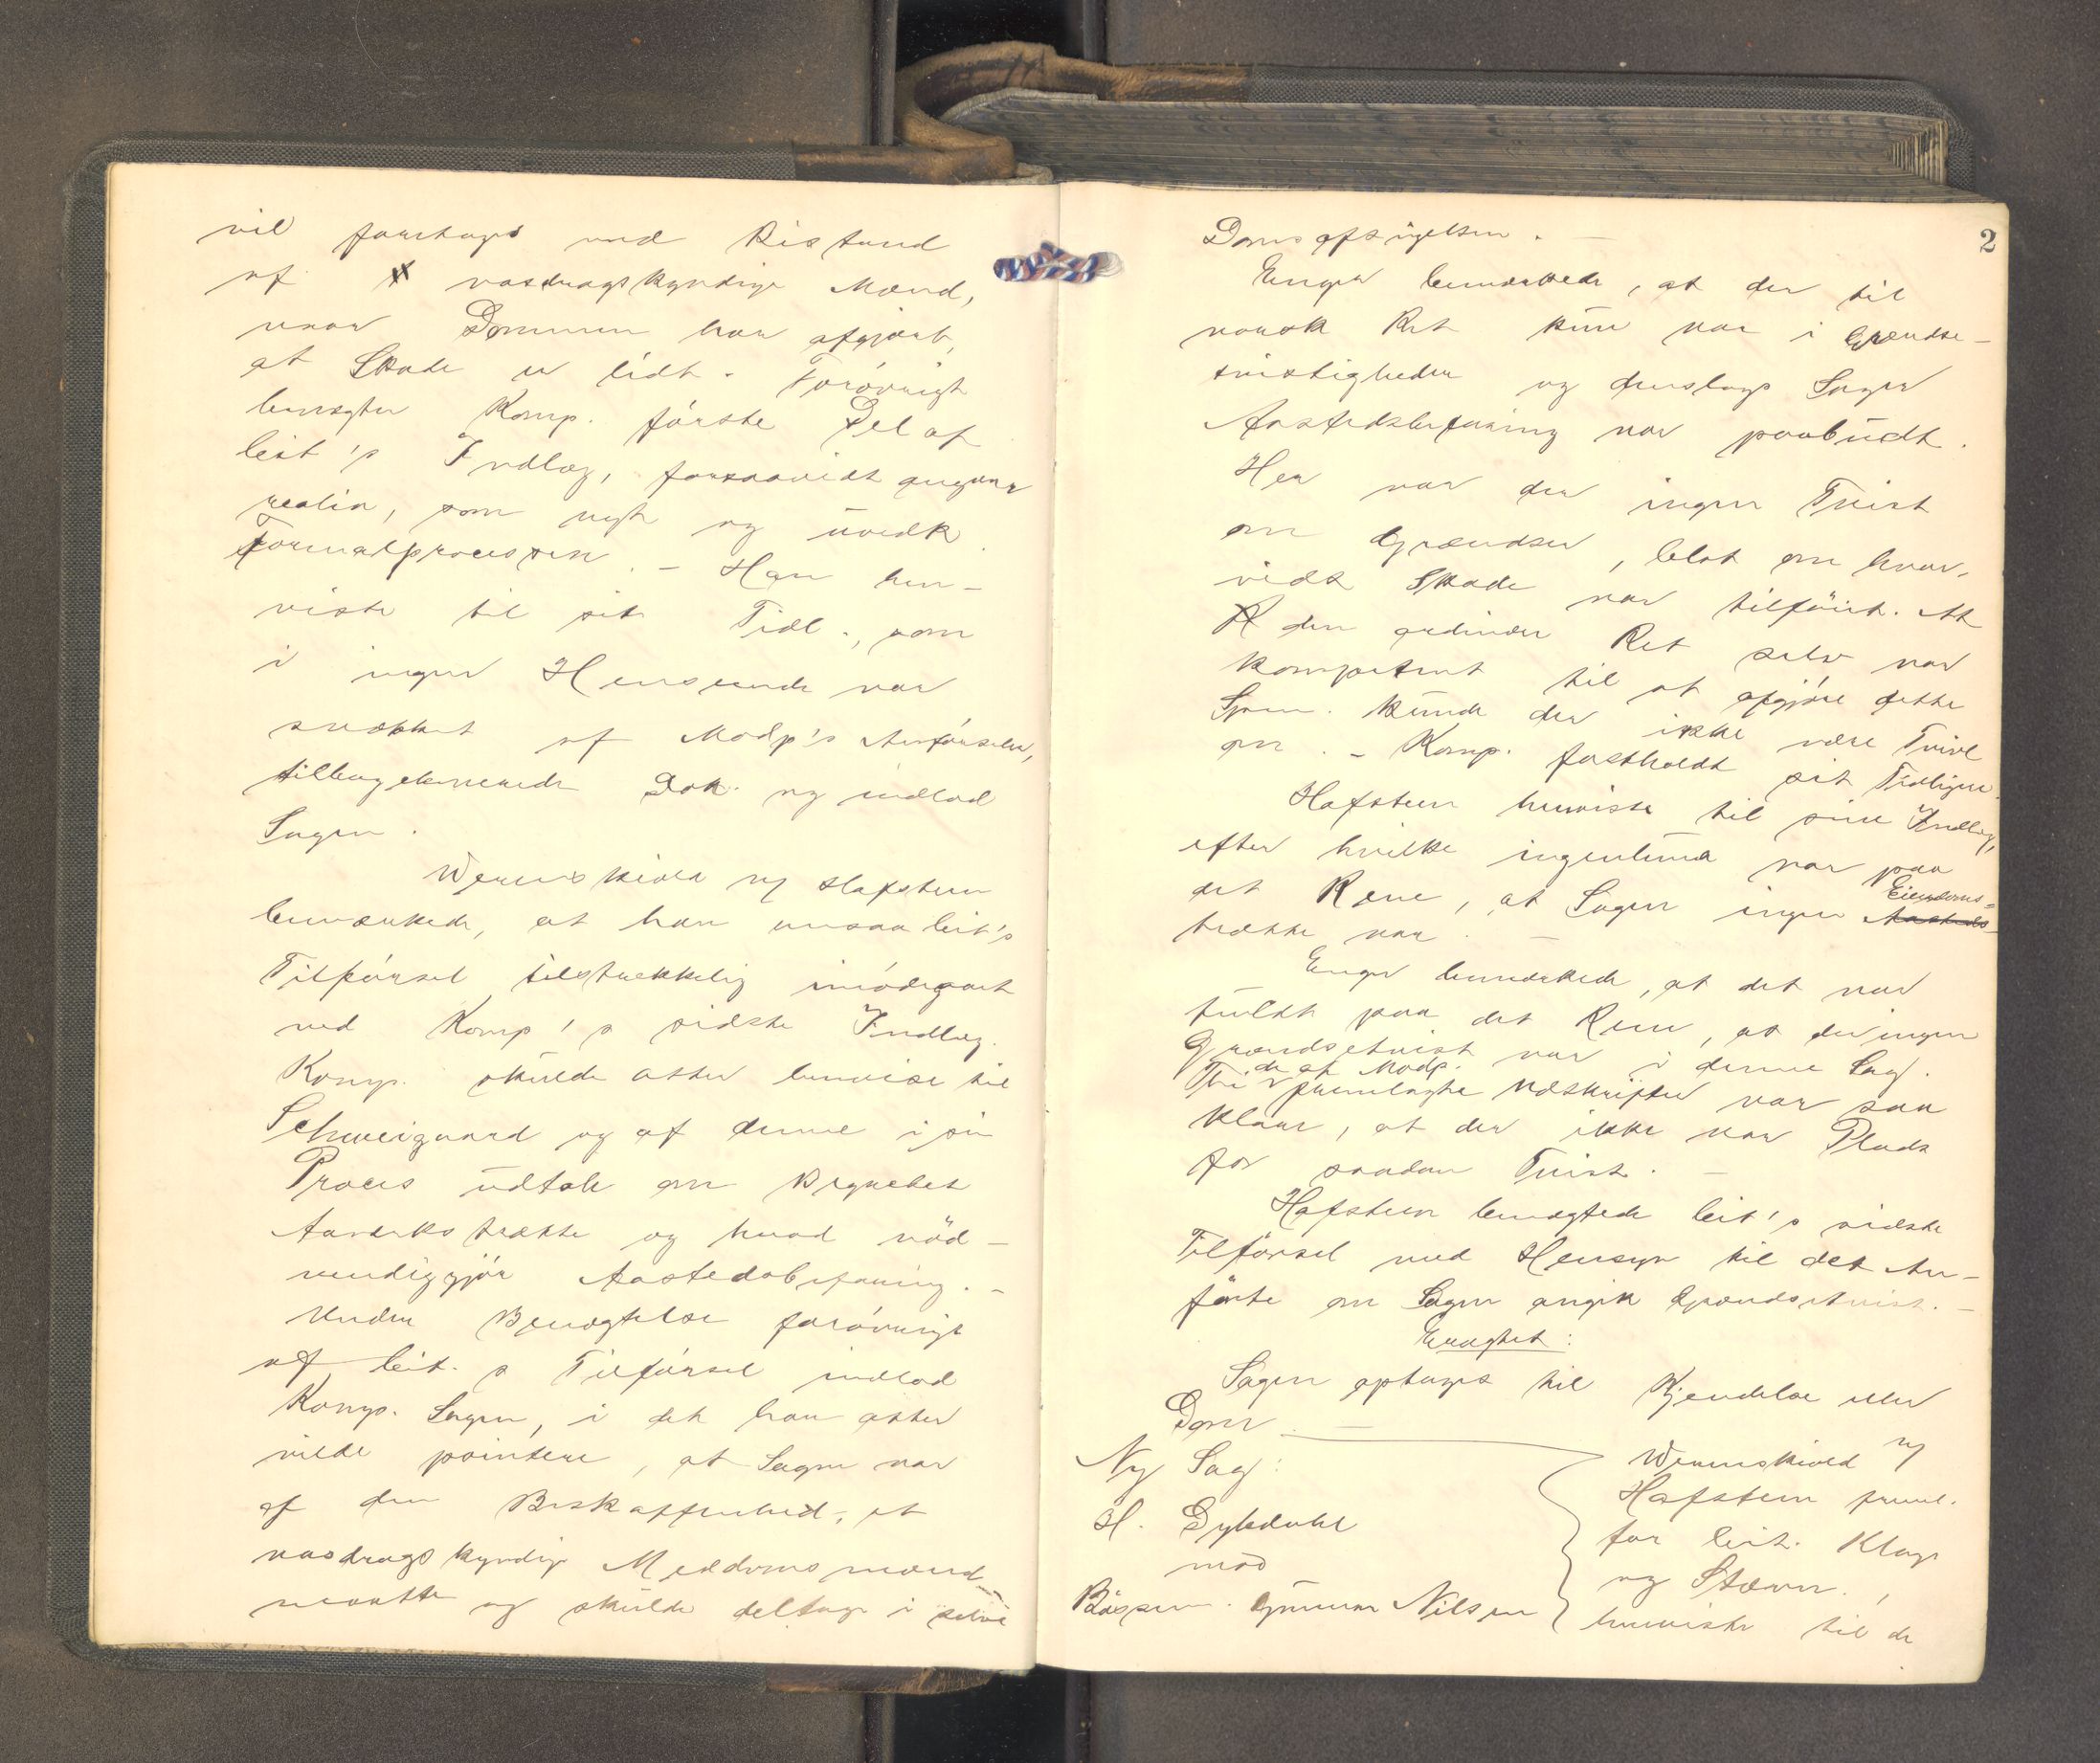 vil foretages med Bistand
af vasdragskyndige Mænd,
naar Dommen har afgjort,
at Skade er lidt. Forøvrigt
benegter Komp. første Del af
Cit's Indlæg, forsaavidt angaar
realia, som nyt og uvedk.
Formalprocessen. – Han hen-
viste til sit Tidl., som
i ingen Henseende var
svækket af Modp's Anførsler,
tilbageleverede Dok. og indlod
Sagen.
Werenskiold og Hafsteen
bemærkede, at han ansaa Cit's
Tilførsel tilstrækkelig imødegaaet
ved Komp's sidste Indlæg.
Komp. skulde atter henvise til
Schweigaard og af denne i sin
Proces udtalt om Begrebet
Aasteds trætte og hvad nød-
vendiggjør Aastedsbefaring. –
Under Benegtelse forøvrigt
af Cit.s Tilførsel indlod
Komp. Sagen, i det han atter
vilde pointere, at Sagen var
af den Beskaffenhed, at
vasdragskyndige Meddomsmænd
maatte og skulde deltage i selve
2
Domsafsigelsen. –
Enger bemærkede, at der til
norsk Ret kun var i Grændse-
tvistigheder og deslags Sager
Aastedsbefaring var paabudt.
Her var der ingen Tvist
om Grændser, blot om hvor-
vidt Skade var tilføiet. At
den ordinær Ret selv var
kompetent til at afgjøre dette
Spm. kunde der ikke være Tvivl
om. – Komp. fastholdt sit Tidligere.
Hafsteen henviste til sine Indlæg,
efter hvilke ingenlunde var paa
det Rene, at Sagen ingen Eiendoms-
trætte var. –
Enger bemærkede, at det var
fuldt paa det Rene, at der ingen
Grændsetvist var i denne Sag.
Thi de af Modp. fremlagte Udskrifter var saa
klare, at der ikke var Plads
for saadan Tvist. –
Hafsteen benegtede Cit's sidste
Tilførsel med Hensyn til det An-
førte om Sagen angik Grændsetvist. –
Eragtet:
Sagen optages til Kjendelse eller
Dom. –
Ny Sag:
H. Dybdahl
mod
Gunnar Nilsen
Werenskiold og
Hafsteen freml.
for Cit. Klage
og Stævn.,
henviste til de